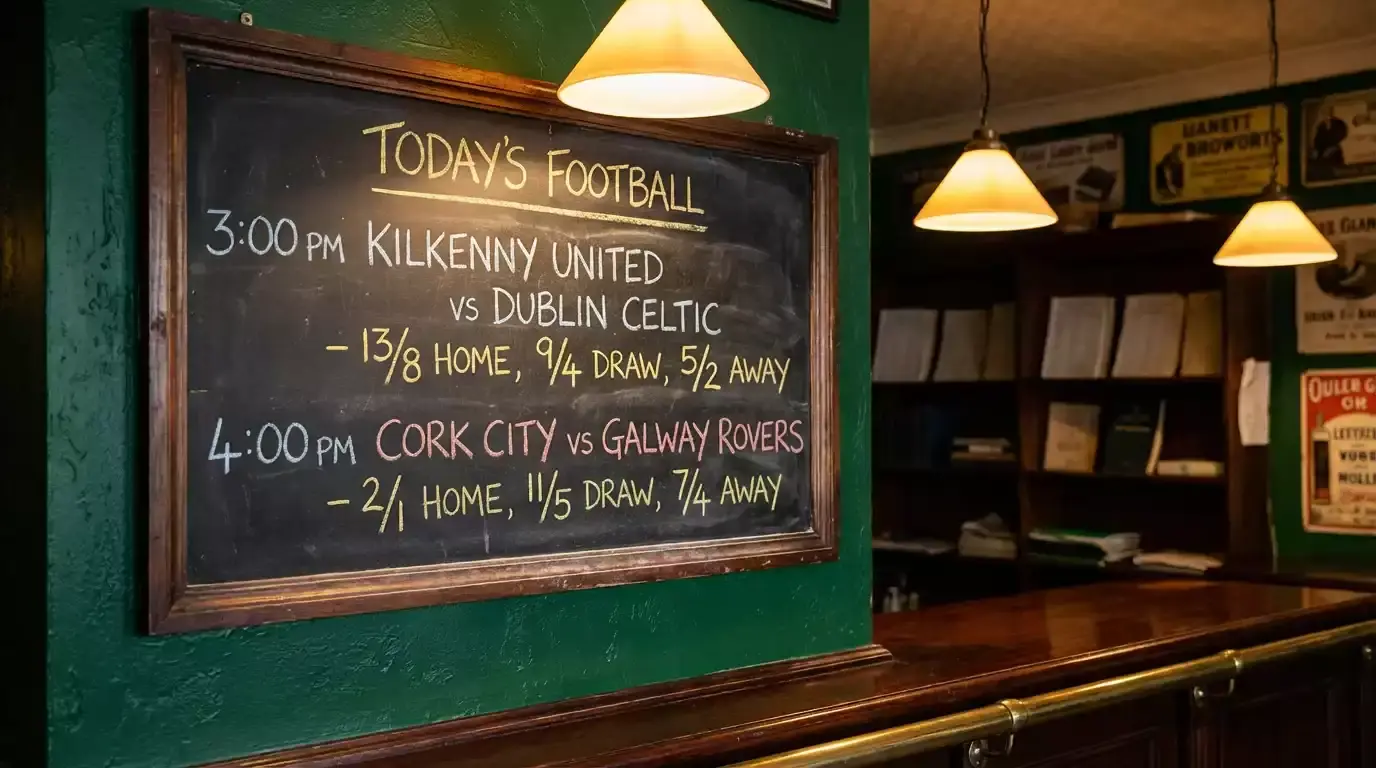 TODAY'S FOOTBALL
3:00 PM KILKENNY UNITED
VS DUBLIN CELTIC
- 13/8 HOME, 9/4 DRAW, 5/2 AWAY
4:00 PM CORK CITY VS GALWAY ROVERS
- 2/1 HOME, 11/5 DRAW, 7/4 AWAY